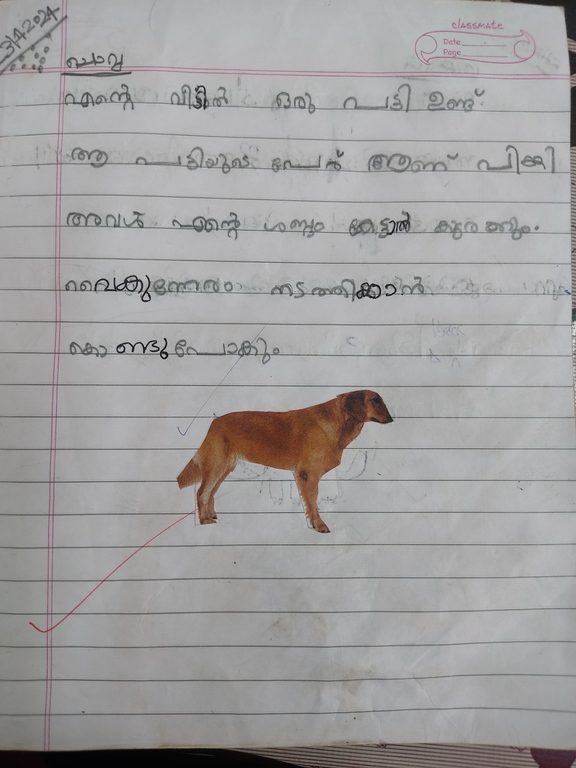 3/4/2024
classmate
Date
Page
എന്റെ വീട്ടിൽ ഒരു പട്ടി ഉണ്ട്.
ആ പട്ടിയുടെ പേര് ആണ് പിങ്കി
അവൾ എന്റെ ശബ്ദം കേട്ടാൽ കുരക്കും.
വൈകുന്നേരം നടത്തിക്കാൻ
കൊണ്ടുപോകും